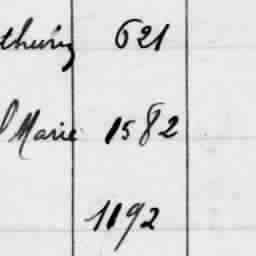 621
Marie 1582
1192